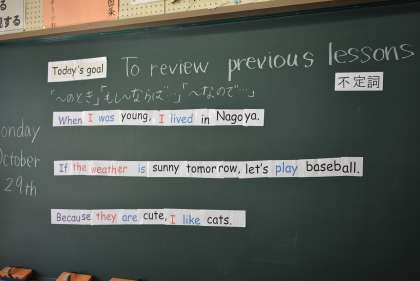 Today's goal To review previous lessons
不定詞
「〜のとき」「もし〜ならば…」「〜なので…」
When I was young, I lived in Nagoya.
onday
October
29th
If the weather is sunny tomorrow, let's play baseball.
Because they are cute, I like cats.